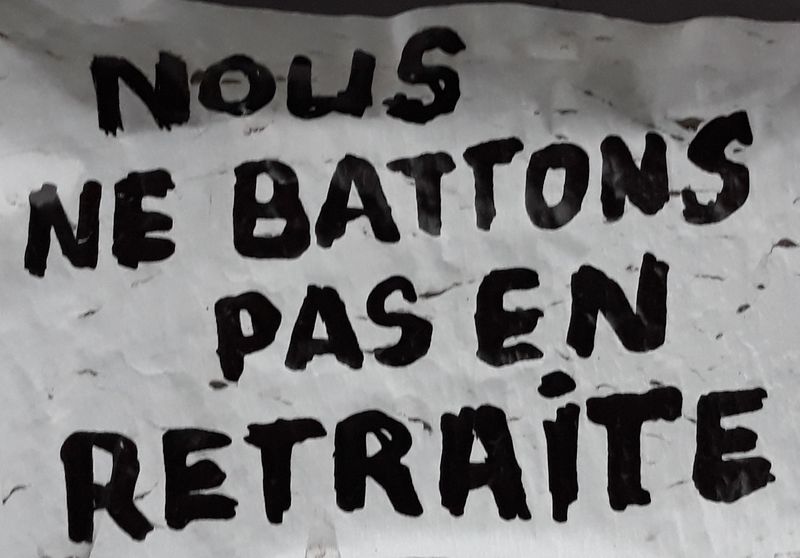 NOUS
NE BATTONS
PAS EN
RETRAiTE